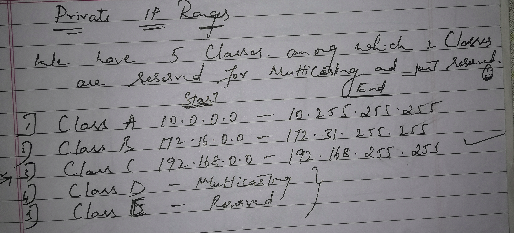 Private IP Ranges
We have 5 Classes among which 2 Classes
are reserved for Multicasting and just reserved.
Start End
1) Class A 10.0.0.0 - 10.255.255.255
2) Class B 172.16.0.0 - 172.31.255.255
3) Class C 192.168.0.0 - 192.168.255.255
4) Class D - Multicasting
5) Class E - Reserved